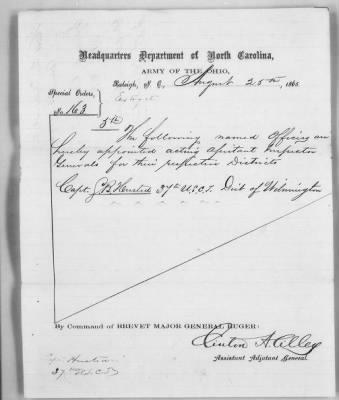 Headquarters Department of North Carolina,
ARMY OF THE OHIO,
Raleigh, N. C., August 25th, 1865
Special Orders,
No. 163
Extract
5th The following named Officers are
hereby appointed acting Assistant Inspector
Generals for their respective Districts
Capt. Husted 37th U.S.C.T. Dist of Wilmington
By Command of BREVET MAJOR GENERAL RUGER:
Clinton A. Cilley
Assistant Adjutant General.
Husted
37th U.S.C.T.